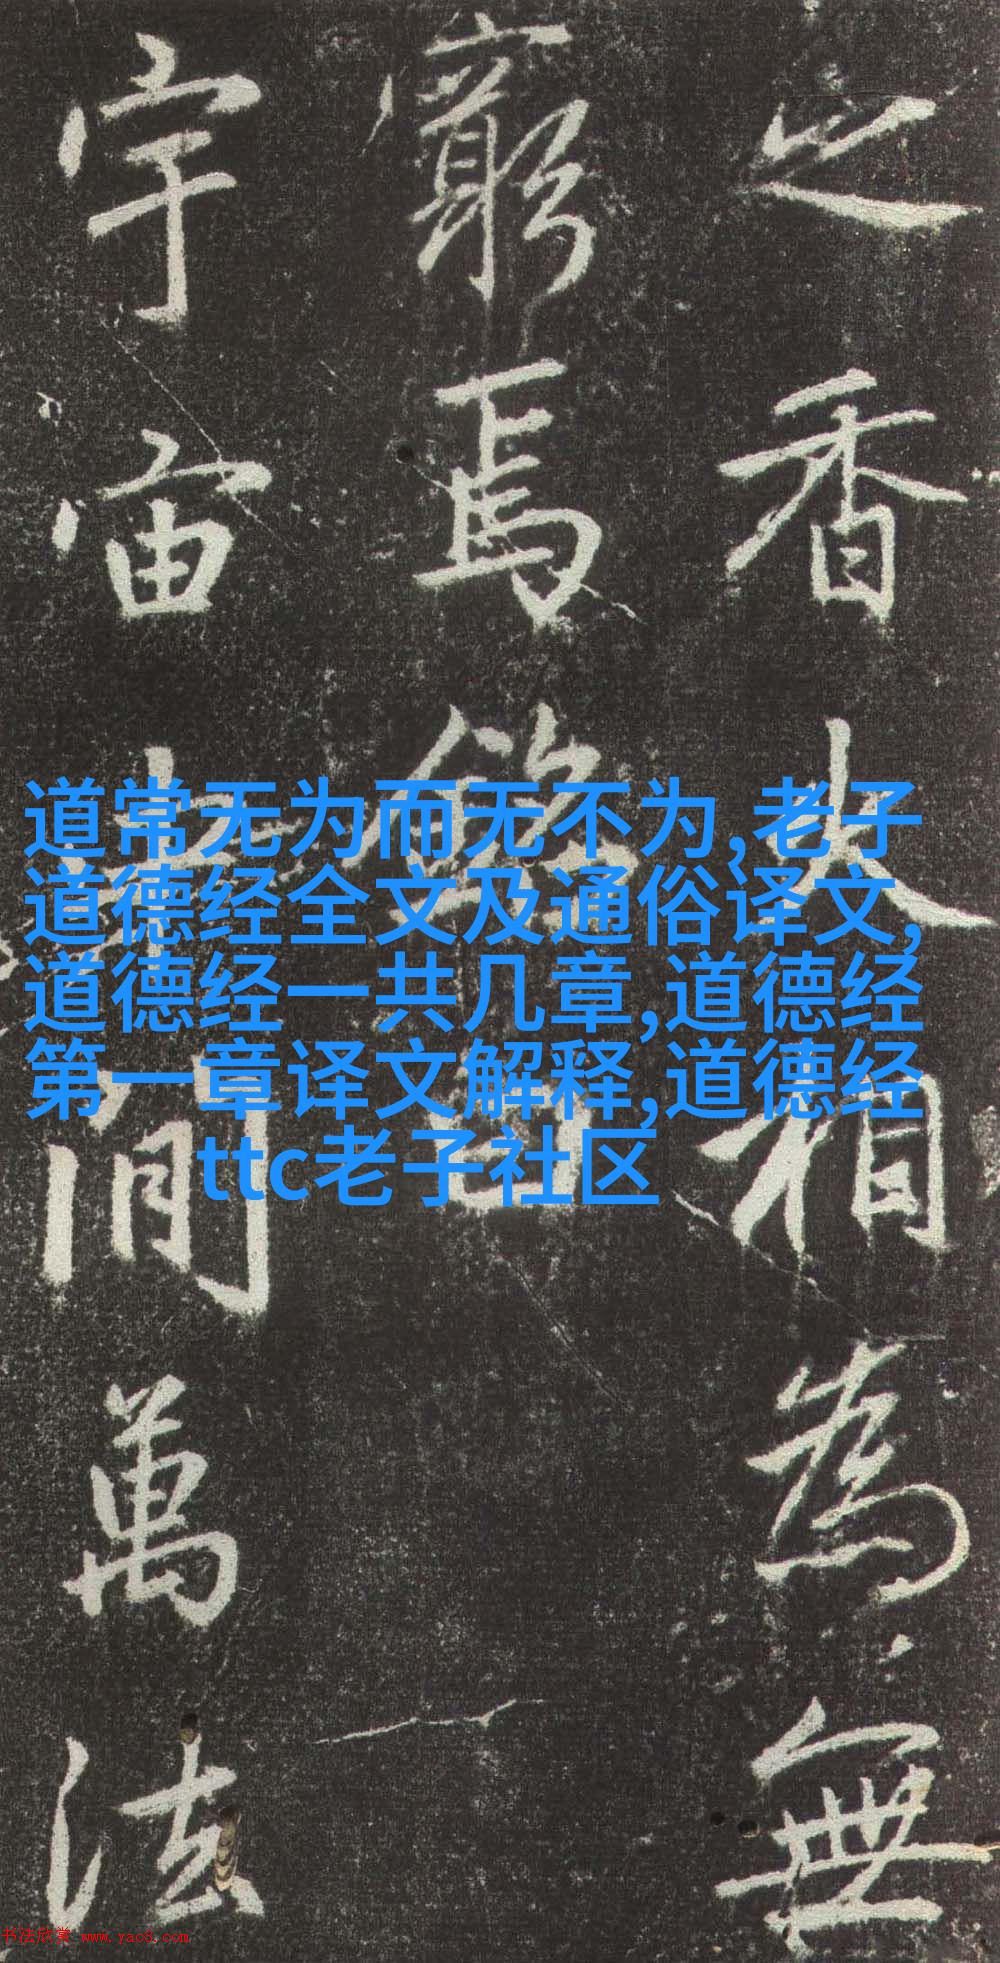 之香火相為無
窮焉銘曰
宇宙間萬法
道常无为而无不为,老子
道德经全文及通俗译文,
道德经一共几章,道德经
第一章译文解释,道德经
ttc老子社区
书法欣赏 www.yac8.com